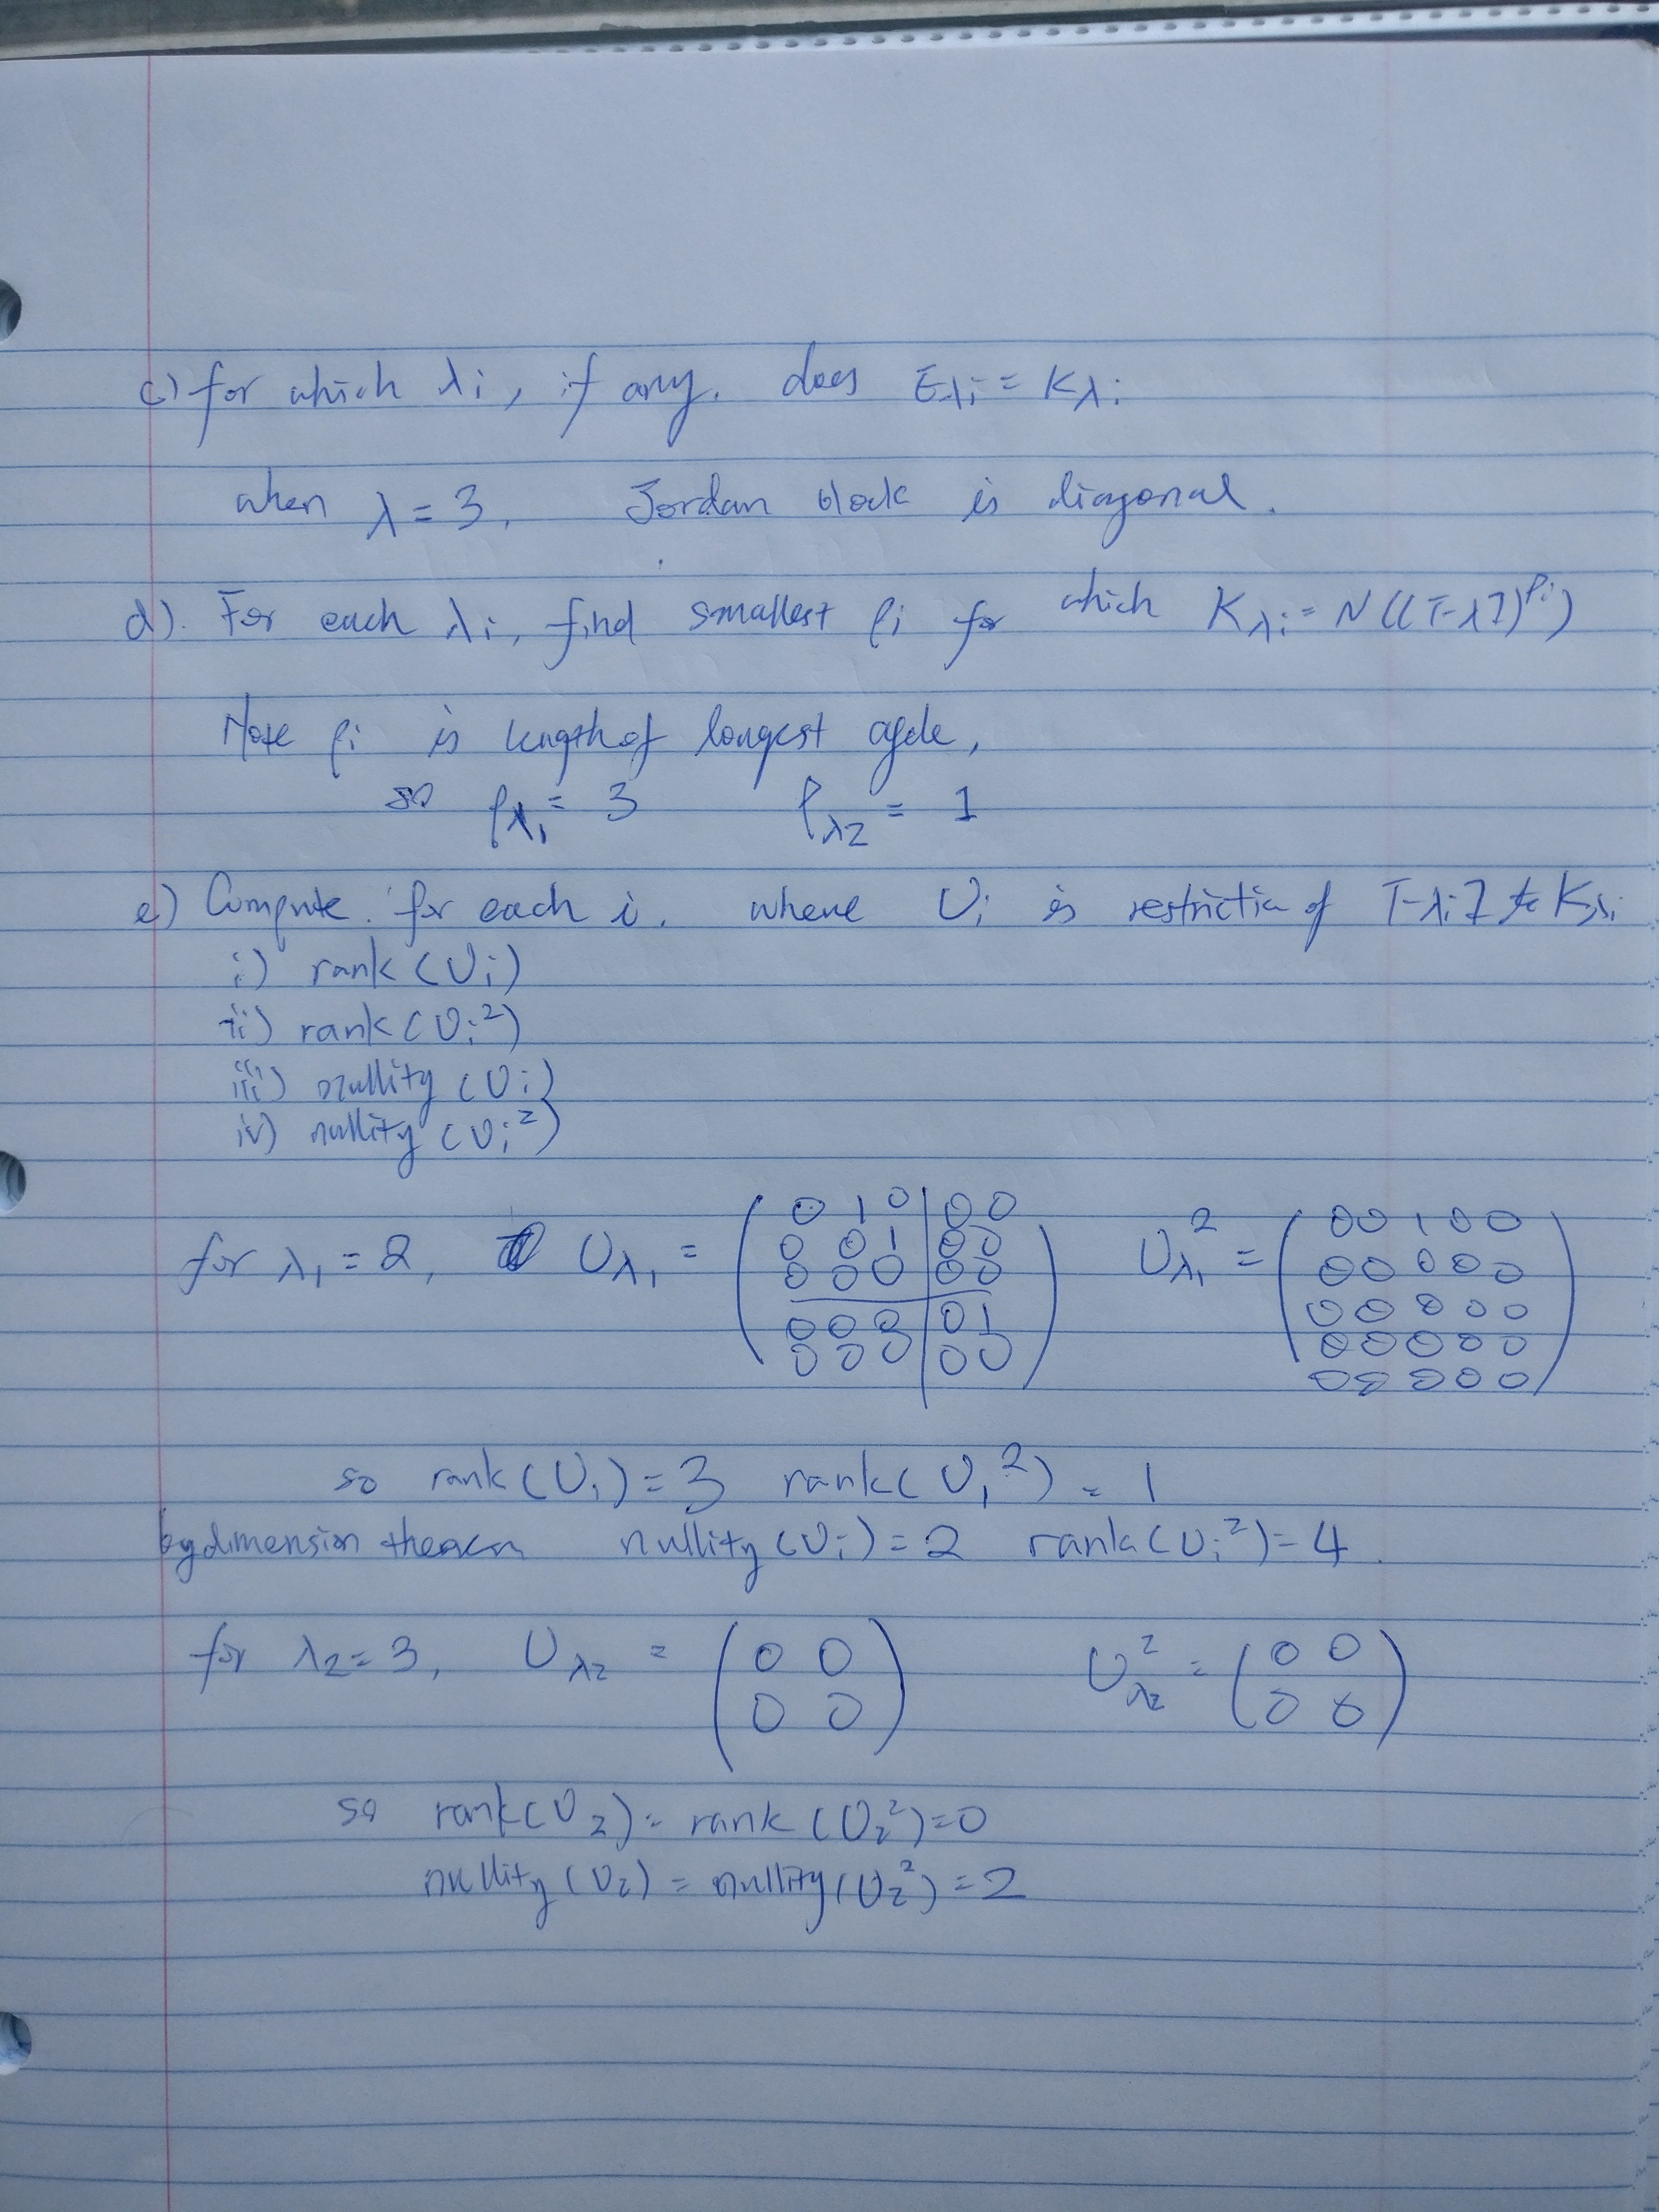 c) for which λi, if any. does Eλi = Kλi
when λ = 3, Jordan block is diagonal.
d). For each λi, find smallest pi for which Kλi = N((T-λI)^pi)
Note pi is length of longest cycle,
so pλ1 = 3 pλ2 = 1
e) Compute for each i, where Ui is restriction of T-λiI to Kλi
i) rank(Ui)
ii) rank(Ui²)
iii) nullity (Ui)
iv) nullity (Ui²)
for λ1 = 2, Uλ1 = ( 0 1 0 | 0 0 Uλ1² = ( 0 0 1 0 0
0 0 1 | 0 0 0 0 0 0 0
0 0 0 | 0 0 0 0 0 0 0
0 0 0 | 0 1 0 0 0 0 0
0 0 0 | 0 0 ) 0 0 0 0 0 )
so rank(U1) = 3 rank(U1²) = 1
by dimension theorem nullity(Ui) = 2 rank(Ui²) = 4.
for λ2 = 3, Uλ2 = ( 0 0 Uλ2² = ( 0 0
0 0 ) 0 0 )
so rank(U2) = rank(U2²) = 0
nullity(U2) = nullity(U2²) = 2